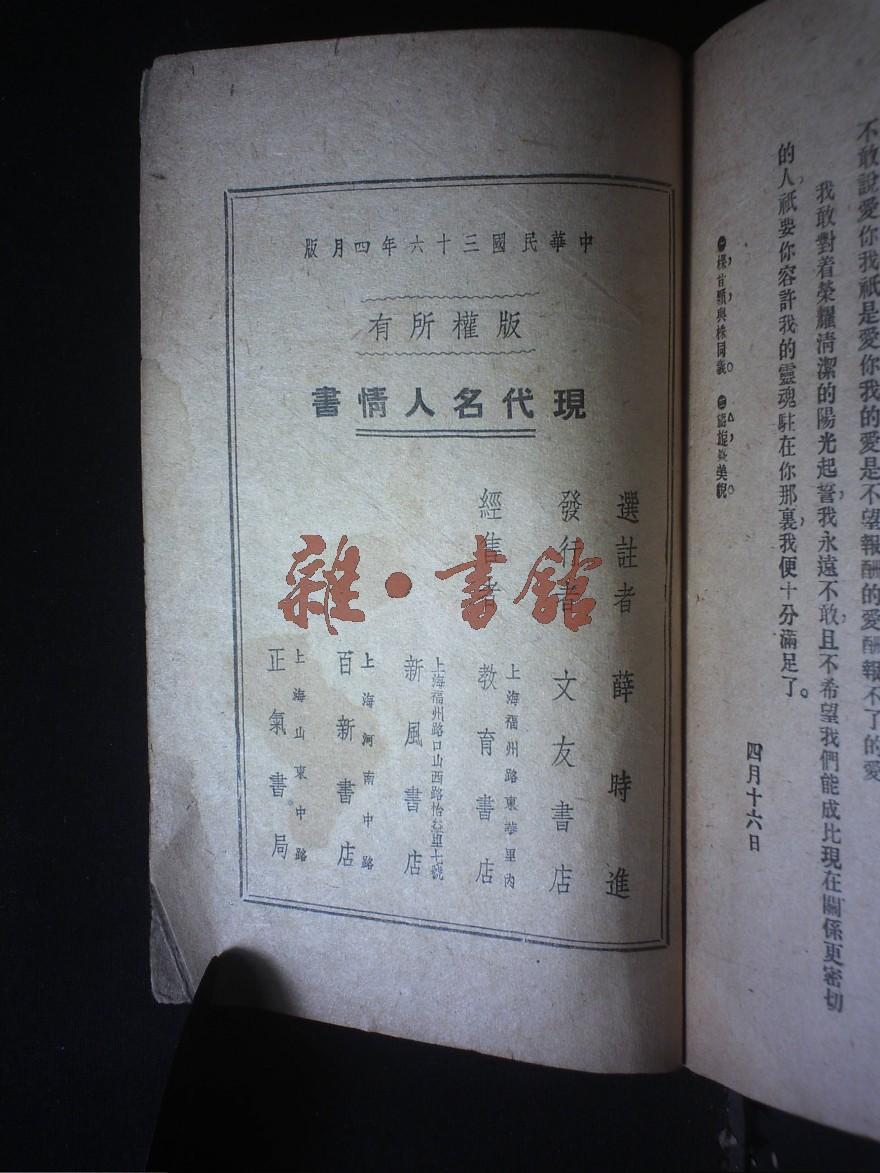 不敢說愛你我祇是愛你我的愛是不望報酬的愛酬報不了的愛
我敢對着榮耀清潔的陽光起誓，我永遠不敢且不希望我們能成比現在關係更密切
的人祇要你容許我的靈魂駐在你那裏，我便十分滿足了。
四月十六日
中華民國三十六年四月版
版權所有
現代名人情書
選註者 薛時進
發行者 文友書店
經售者
上海福州路東華里內
教育書店
上海福州路口山西路怡益里七號
新風書店
上海河南中路
百新書店
上海山東中路
正氣書局
雜·書館